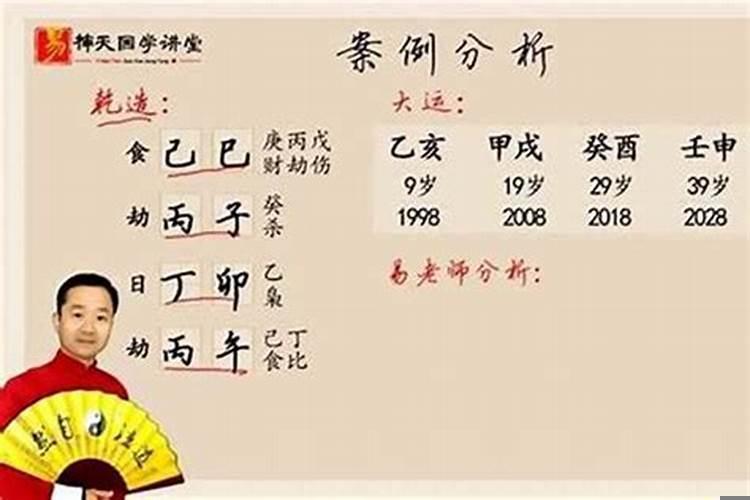 易 禅天国学讲堂
案例分析
乾造：
食 己巳 庚丙戊
财劫伤
劫 丙子 癸
杀
日 丁卯 乙
枭
劫 丙午 己丁
食比
大运：
乙亥 甲戌 癸酉 壬申
9岁 19岁 29岁 39岁
1998 2008 2018 2028
易老师分析：
然自 法道